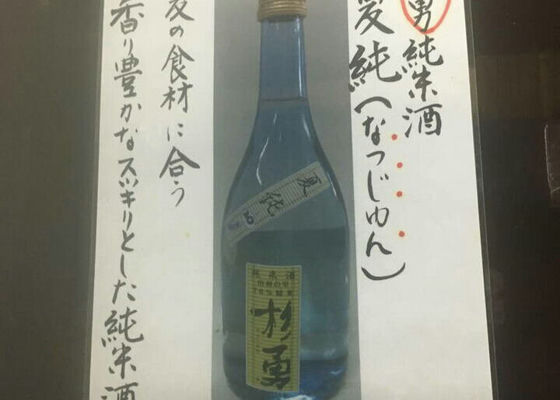 勇 純米酒
夏純(なつじゅん)
夏の食材に合う
香り豊かなスッキリとした純米酒
夏純
純米酒
杉勇